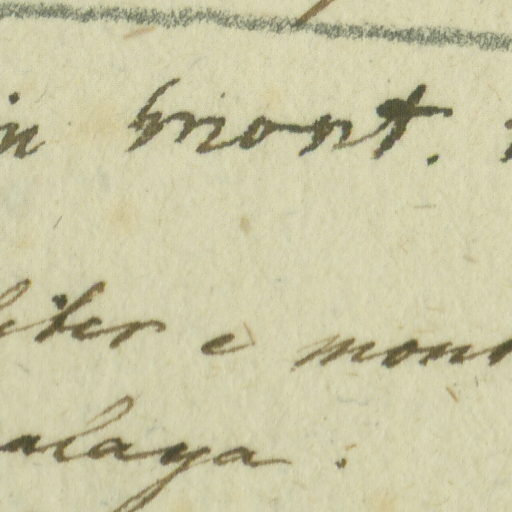 in mont.
iter e mont
alaya.